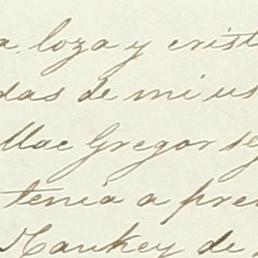 a, loza y crist
das de mi us
Mac Gregor se
tenia a pre
Mankey de